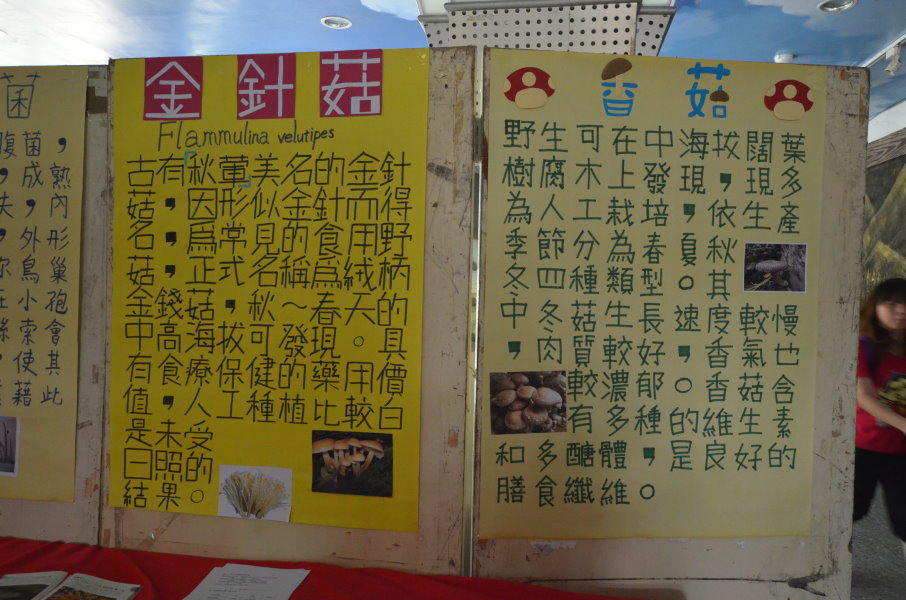 菌
腹菌，
，成熟
失，內
，外形
你鳥巢
在小孢
絲索會
，使其
藉此
金針菇
Flammulina velutipes
古有「秋蕈」美名的金針
菇，因形似金針而得
名，為常見的食用野
菇，正式名稱為絨柄
金錢菇，秋～春天的
中高海拔可發現。具
有食療保健的藥用價
值，人工種植比較白
是未受
日照的
結果。
香菇
野生可在中海拔闊葉
樹腐木上發現，現多
為人工栽培，依生產
季節分為春夏秋
冬四種類型。其
中，冬菇生長速度較慢
，肉質較好，香氣也
較濃郁。香菇含
有多種的維生素
和多醣體，是良好的
膳食纖維。